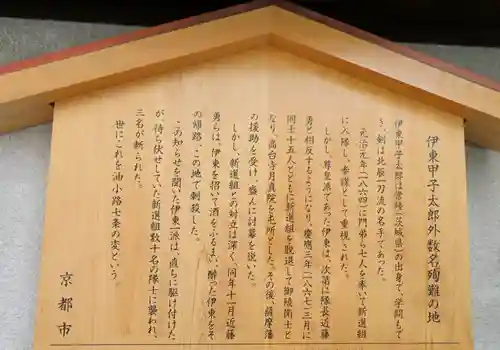 伊東甲子太郎外数名殉難の地
伊東甲子太郎は常陸(茨城県)の出身で、学問もで
き、剣は北辰一刀流の名手であった。
元治元年(一八六四)に門弟ら七人を率いて新選組
に入隊し、参謀として重視された。
しかし、尊皇派であった伊東は、次第に隊長近藤
勇と相反するようになり、慶應三年(一八六七)三月に
同士十五人とともに新選組を脱退して御陵衛士と
なり、高台寺月真院を屯所とした。その後、薩摩藩
の援助を受け、盛んに討幕を説いた。
しかし、新選組との対立は深く、同年十一月近藤
勇らは、伊東を招いて酒をふるまい、酔った伊東をそ
の帰路、この地で刺殺した。
この知らせを聞いた伊東一派は、直ちに駆け付けた
が、待ち伏せしていた新選組数十名の隊士に襲われ、
三名が斬られた。
世にこれを油小路七条の変という
京都市